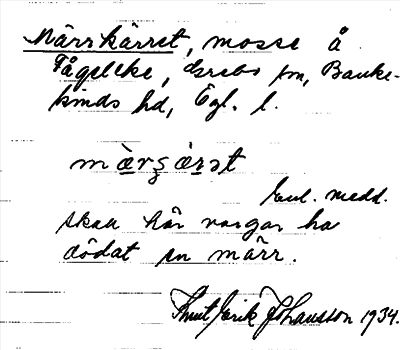 Märrkärret, mosse å
Fågeleke, Örebo sn, Banke-
kinds hd, Ögl. l.
màrʂàrət
Enl. medd.
skall här vargar ha
dödat en märr.
Knut Erik Johansson 1934.